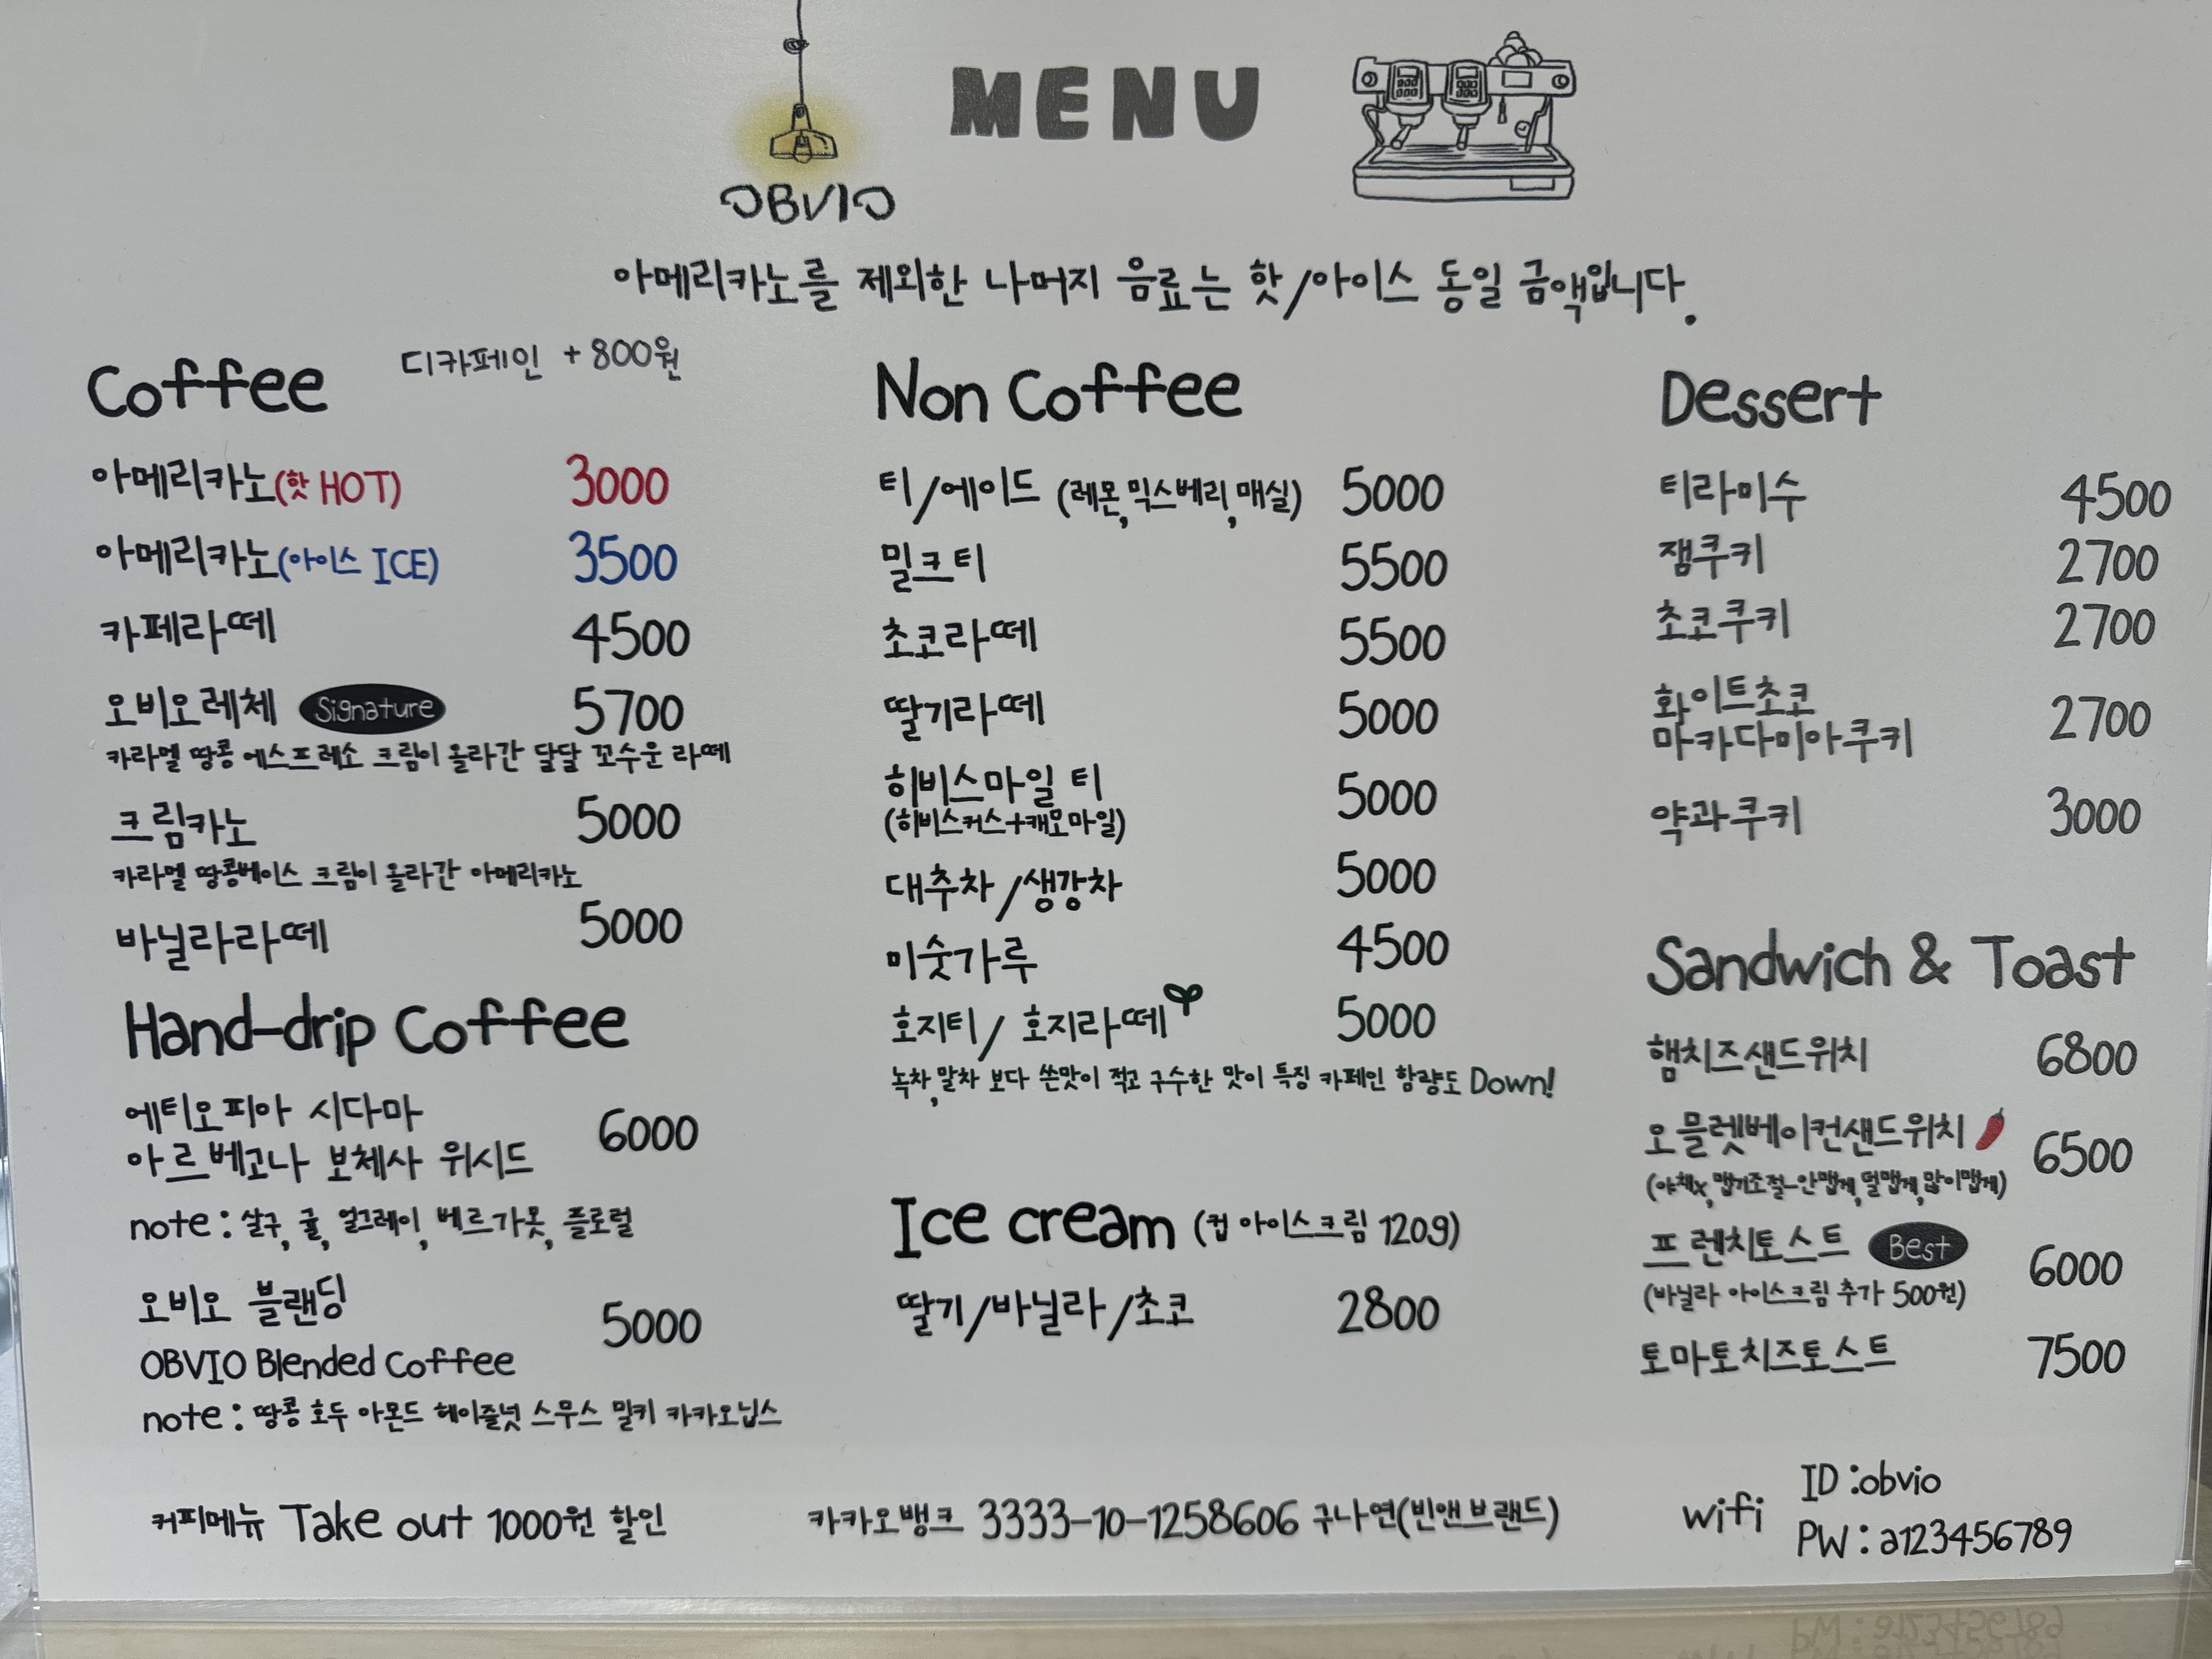 MENU
OBVIO
아메리카노를 제외한 나머지 음료는 핫/아이스 동일 금액입니다.
Coffee 디카페인 +800원
아메리카노(핫 HOT) 3000
아메리카노(아이스 ICE) 3500
카페라떼 4500
오비오레체 Signature 5700
카라멜 땅콩 에스프레소 크림이 올라간 달달 꼬수운 라떼
크림카노 5000
카라멜 땅콩베이스 크림이 올라간 아메리카노
바닐라라떼 5000
Hand-drip Coffee
에티오피아 시다마
아르베고나 보체사 위시드 6000
note : 살구, 귤, 얼그레이, 베르가못, 플로럴
오비오 블랜딩 5000
OBVIO Blended Coffee
note : 땅콩 호두 아몬드 헤이즐넛 스무스 밀키 카카오닙스
Non Coffee
티/에이드 (레몬,믹스베리,매실) 5000
밀크티 5500
초코라떼 5500
딸기라떼 5000
히비스마일 티 5000
(히비스커스+캐모마일)
대추차/생강차 5000
미숫가루 4500
호지티/ 호지라떼 5000
녹차,말차 보다 쓴맛이 적고 구수한 맛이 특징 카페인 함량도 Down!
Ice cream (컵 아이스크림 120g)
딸기/바닐라/초코 2800
Dessert
티라미수 4500
잼쿠키 2700
초코쿠키 2700
화이트초코
마카다미아쿠키 2700
약과쿠키 3000
Sandwich & Toast
햄치즈샌드위치 6800
오믈렛베이컨샌드위치 6500
(야채x,맵기조절-안맵게,덜맵게,많이맵게)
프렌치토스트 Best 6000
(바닐라 아이스크림 추가 500원)
토마토치즈토스트 7500
커피메뉴 Take out 1000원 할인
카카오뱅크 3333-10-1258606 구나연(빈앤브랜드)
wifi ID :obvio
PW : a123456789